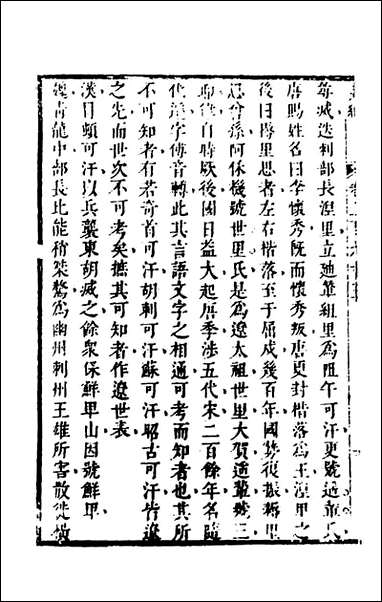 每臧迭剌部長涅里立廸輦組里為阻午可汗更號遙輦氏
唐賜姓名曰李懷秀既而懷秀叛唐更封楷落為王涅里之
後曰耨里思者左右楷落至于屈戍幾百年國勢復振耨里
思曾孫阿保機號世里氏是為遼太祖世里大賀遙輦號三
耶律自時厥後國日益大起唐季涉五代宋二百餘年名隨
代遷字傳音轉此其言語文字之相通可考而知者也其所
不可知者有若奇首可汗胡剌可汗蘇可汗昭古可汗皆遼
之先而世次不可考矣摭其可知者作遼世表
漢冒頓可汗以兵襲東胡滅之餘衆保鮮卑山因號鮮卑
魏青龍中部長比能稍桀驁為幽州刺州王雄所害散徙潢